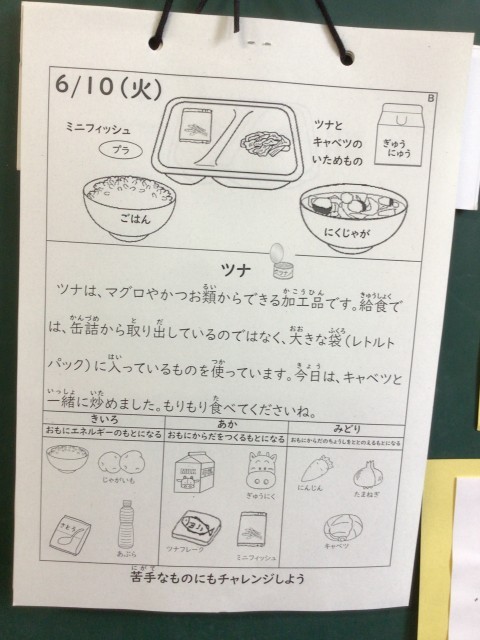 6/10(火)
B
ミニフィッシュ
プラ
ツナと
キャベツの
いためもの
ぎゅう
にゅう
ごはん
にくじゃが
ツナ
ツナ
ツナは、マグロやかつお類からできる加工品です。給食で
は、缶詰から取り出しているのではなく、大きな袋(レトルト
パック)に入っているものを使っています。今日は、キャベツと
一緒に炒めました。もりもり食べてくださいね。
きいろ
おもにエネルギーのもとになる
あか
おもにからだをつくるもとになる
みどり
おもにからだのちょうしをととのえるもとになる
じゃがいも
ぎゅうにく
にんじん
たまねぎ
さとう
あぶら
ツナフレーク
ミニフィッシュ
キャベツ
苦手なものにもチャレンジしよう